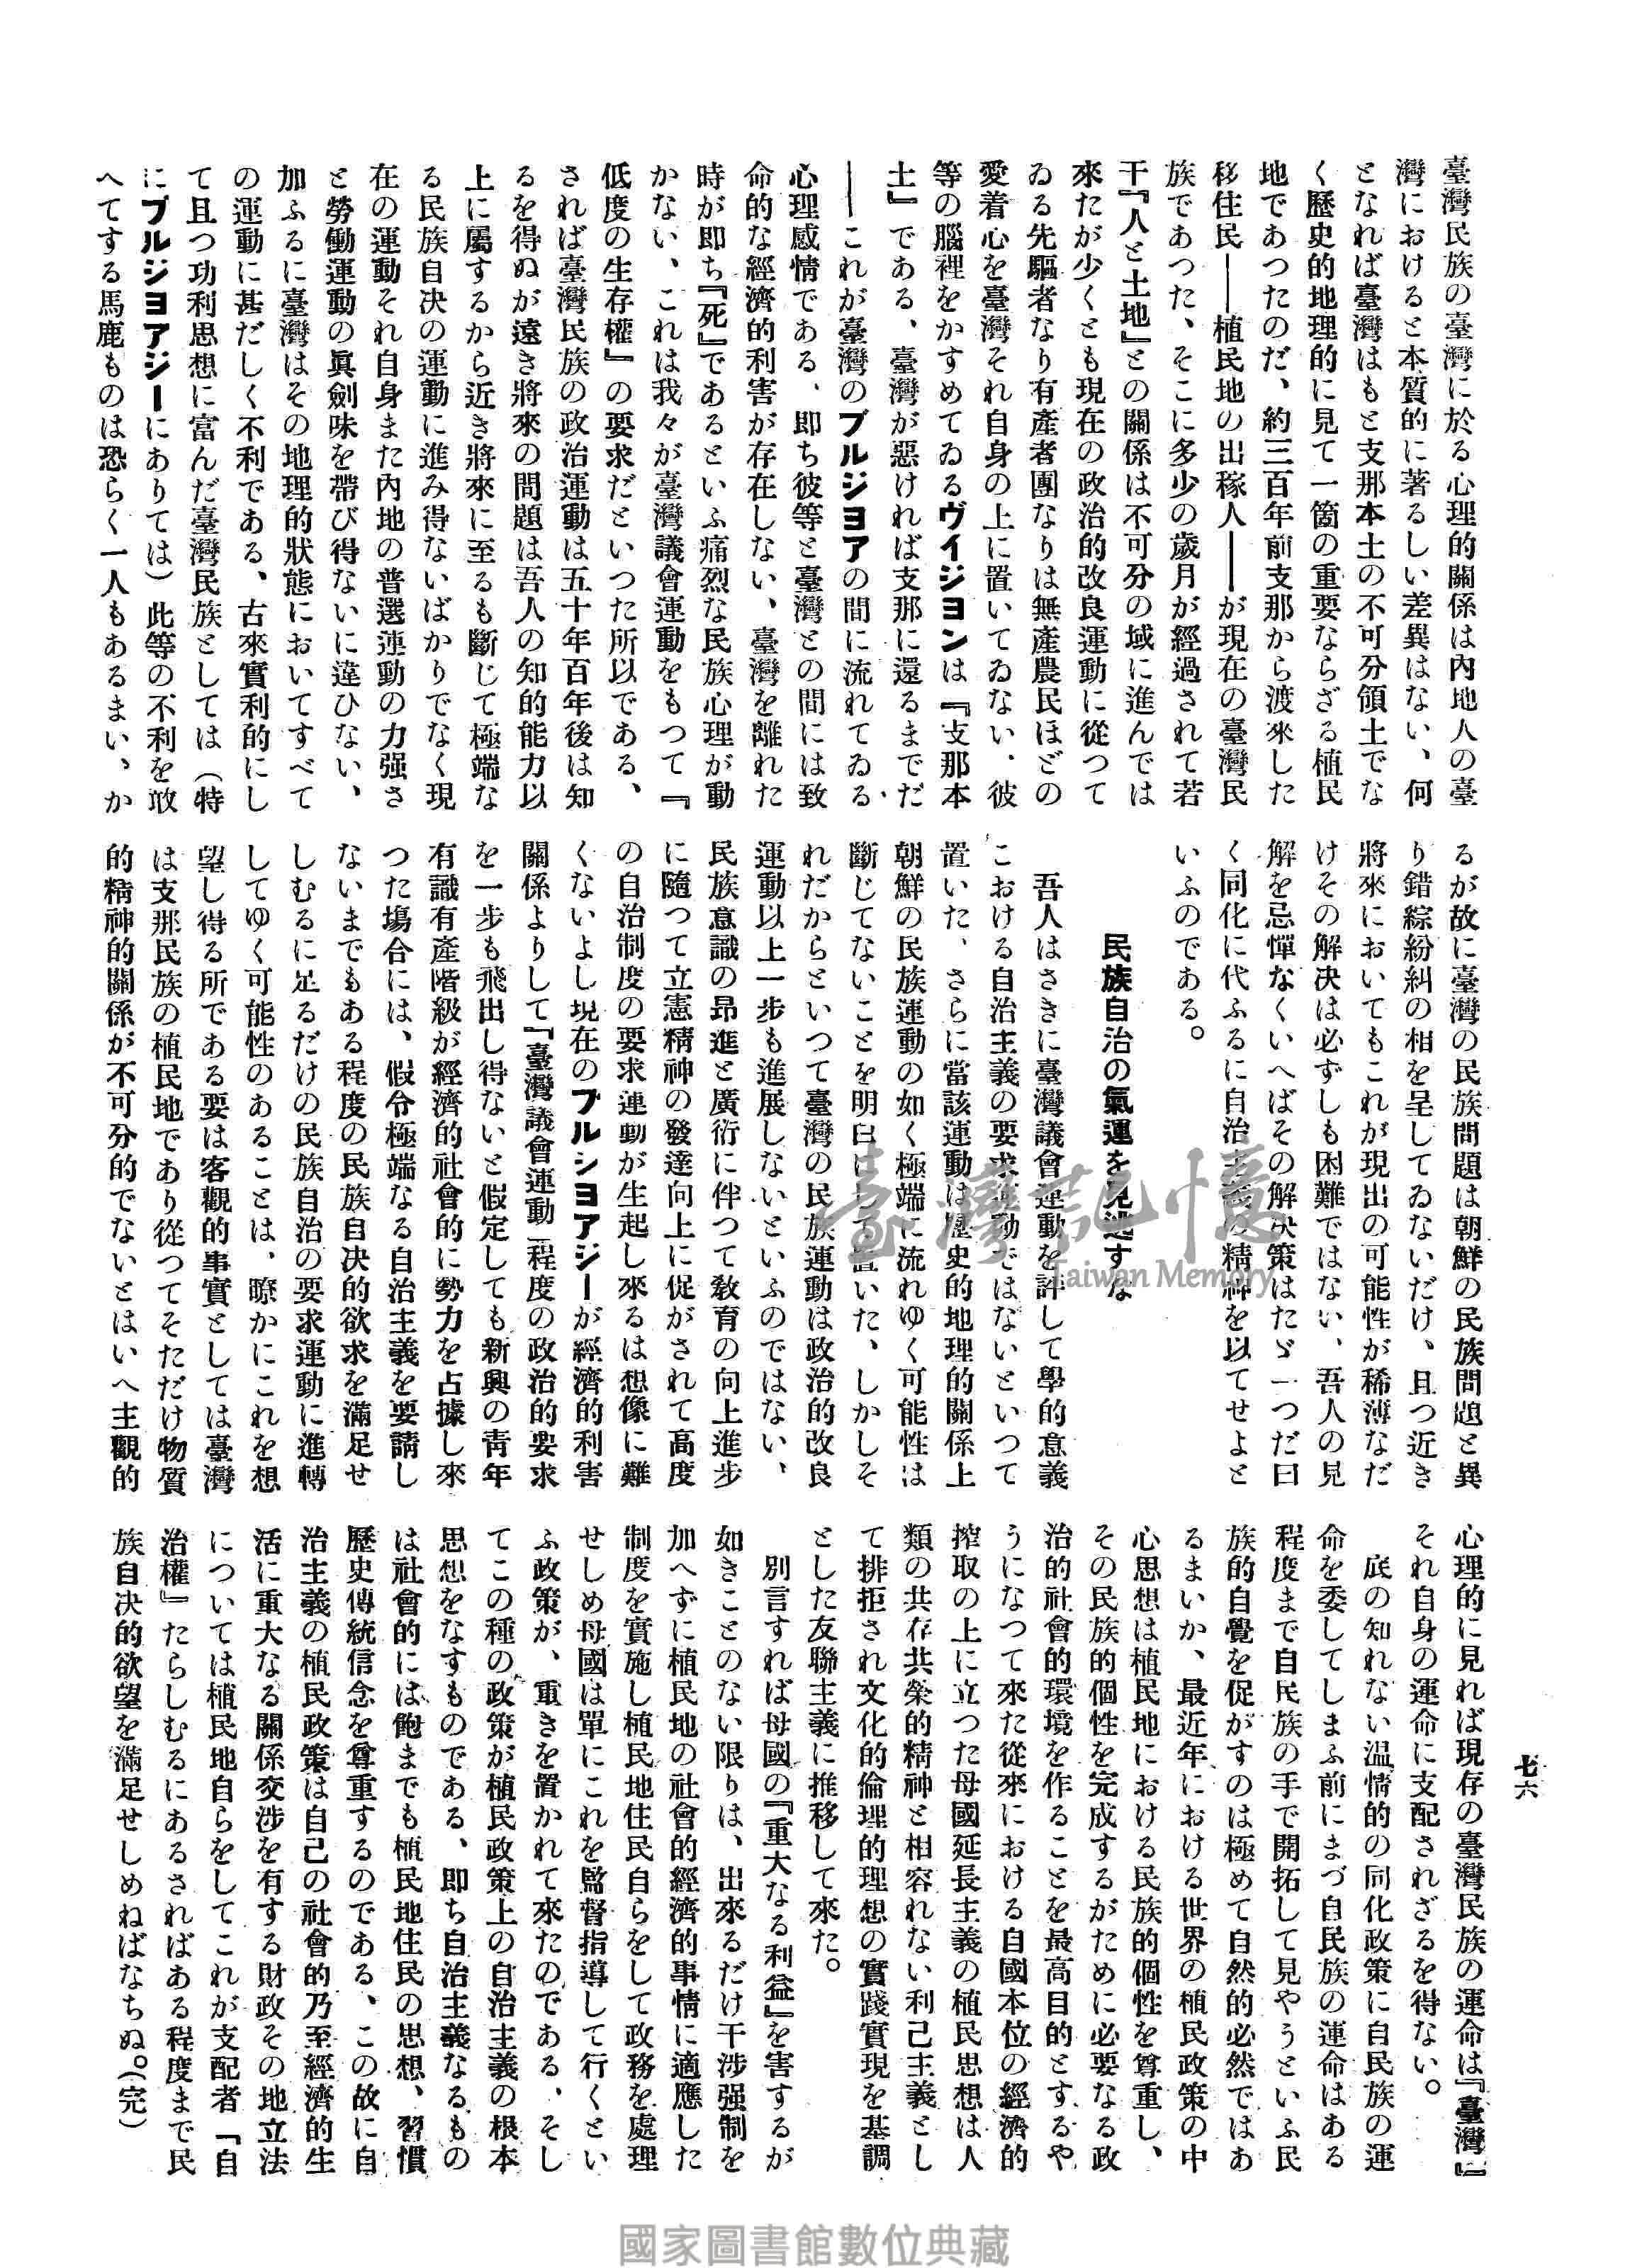 臺灣民族の臺灣に於る心理的關係は內地人の臺
灣におけると本質的に著るしい差異はない、何
となれば臺灣はもと支那本土の不可分領土でな
く歷史的地理的に見て一箇の重要ならざる植民
地であつたのだ、約三百年前支那から渡來した
移住民——植民地の出稼人——が現在の臺灣民
族であつた、そこに多少の歲月が經過されて若
干『人と土地』との關係は不可分の域に進んでは
來たが少くとも現在の政治的改良運動に從つて
ゐる先驅者なり有產者團なりは無產農民ほどの
愛着心を臺灣それ自身の上に置いてゐない、彼
等の腦裡をかすめてゐるヴイジヨンは『支那本
土』である、臺灣が惡ければ支那に還るまでだ
——これが臺灣のブルジヨアの間に流れてゐる
心理感情である、即ち彼等と臺灣との間には致
命的な經濟的利害が存在しない、臺灣を離れた
時が即ち『死』であるといふ痛烈な民族心理が動
かない、これは我々が臺灣議會運動をもつて『
低度の生存權』の要求だといつた所以である、
されば臺灣民族の政治運動は五十年百年後は知
るを得ぬが遠き將來の問題は吾人の知的能力以
上に屬するから近き將來に至るも斷じて極端な
る民族自決の運動に進み得ないばかりでなく現
在の運動それ自身また內地の普選運動の力强さ
と勞働運動の眞劍味を帶び得ないに違ひない、
加ふるに臺灣はその地理的狀態においてすべて
の運動に甚だしく不利である、古來實利的にし
て且つ功利思想に富んだ臺灣民族としては（特
にブルジヨアジーにありては）此等の不利を敢
へてする馬鹿ものは恐らく一人もあるまい、か
るが故に臺灣の民族問題は朝鮮の民族問題と異
り錯綜紛糾の相を呈してゐないだけ、且つ近き
將來においてもこれが現出の可能性が稀薄なだ
けその解決は必ずしも困難ではない、吾人の見
解を忌憚なくいへばその解決策はたゞ一つだ曰
く同化に代ふるに自治主義の精神を以てせよと
いふのである。
民族自治の氣運を見逃すな
吾人はさきに臺灣議會運動を評して學的意義
における自治主義の要求運動ではないといつて
置いた、さらに當該運動は歷史的地理的關係上
朝鮮の民族運動の如く極端に流れゆく可能性は
斷じてないことを明白にして置いた、しかしそ
れだからといつて臺灣の民族運動は政治的改良
運動以上一步も進展しないといふのではない、
民族意識の昂進と廣衍に伴つて敎育の向上進步
に隨つて立憲精神の發達向上に促がされて高度
の自治制度の要求運動が生起し來るは想像に難
くないよし現在のブルシヨアジーが經濟的利害
關係よりして『臺灣議會運動』程度の政治的要求
を一步も飛出し得ないと假定しても新興の靑年
有識有產階級が經濟的社會的に勢力を占據し來
つた塲合には、假令極端なる自治主義を要請し
ないまでもある程度の民族自決的欲求を滿足せ
しむるに足るだけの民族自治の要求運動に進轉
してゆく可能性のあることは、瞭かにこれを想
望し得る所である要は客觀的事實としては臺灣
は支那民族の植民地であり從つてそただけ物質
的精神的關係が不可分的でないとはいへ主觀的
七六
心理的に見れば現存の臺灣民族の運命は『臺灣』
それ自身の運命に支配されざるを得ない。
底の知れない溫情的の同化政策に自民族の運
命を委してしまふ前にまづ自民族の運命はある
程度まで自民族の手で開拓して見やうといふ民
族的自覺を促がすのは極めて自然的必然ではあ
るまいか、最近年における世界の植民政策の中
心思想は植民地における民族的個性を尊重し、
その民族的個性を完成するがために必要なる政
治的社會的環境を作ることを最高目的とするや
うになつて來た從來における自國本位の經濟的
搾取の上に立つた母國延長主義の植民思想は人
類の共存共榮的精神と相容れない利己主義とし
て排拒され文化的倫理的理想の實踐實現を基調
とした友聯主義に推移して來た。
別言すれば母國の『重大なる利益』を害するが
如きことのない限りは、出來るだけ干涉强制を
加へずに植民地の社會的經濟的事情に適應した
制度を實施し植民地住民自らをして政務を處理
せしめ母國は單にこれを監督指導して行くとい
ふ政策が、重きを置かれて來たのである、そし
てこの種の政策が植民政策上の自治主義の根本
思想をなすものである、即ち自治主義なるもの
は社會的には飽までも植民地住民の思想、習慣
歷史傳統信念を尊重するのである、この故に自
治主義の植民政策は自己の社會的乃至經濟的生
活に重大なる關係交涉を有する財政その他立法
については植民地自らをしてこれが支配者「自
治權』たらしむるにあるさればある程度まで民
族自決的欲望を滿足せしめねばなちぬ。（完）
臺灣記憶
Taiwan Memory
國家圖書館數位典藏